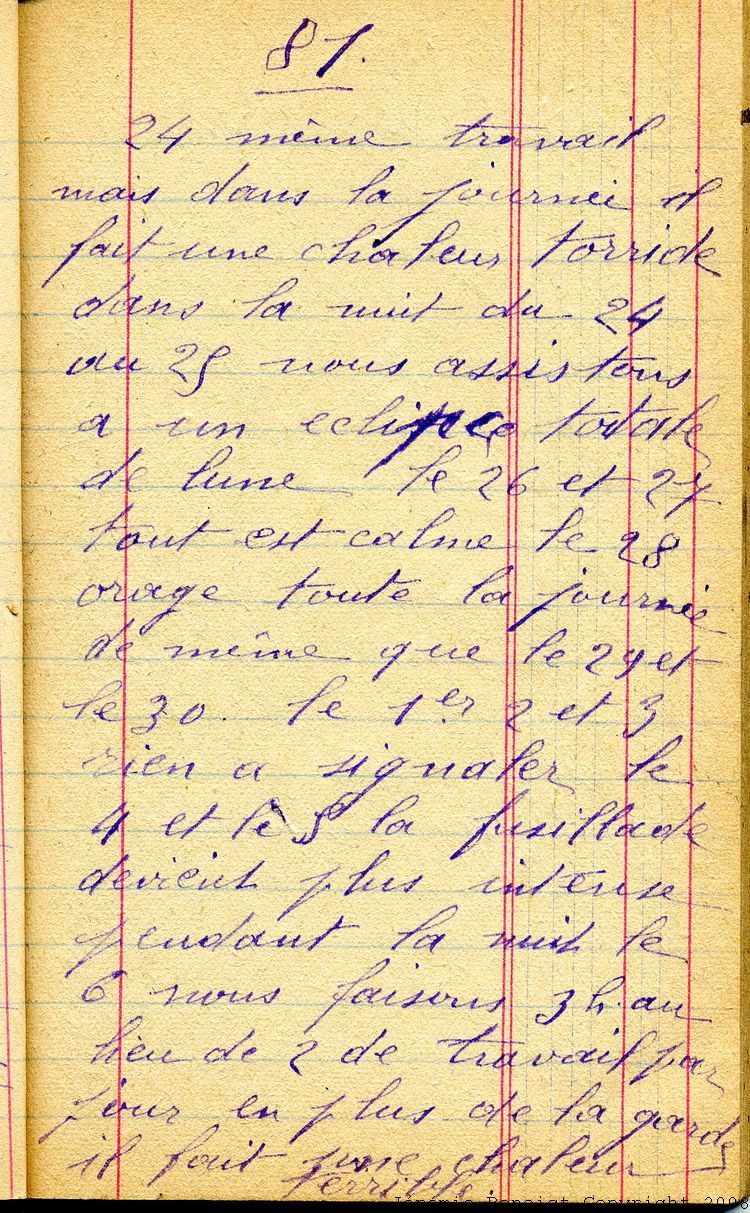 81.
24 même travail
mais dans la journée il
fait une chaleur torride
dans la nuit du 24
au 25 nous assistons
a un eclipce totale
de lune le 26 et 27
tout est calme le 28
orage toute la journée
de même que le 29 et
le 30. le 1er 2 et 3
rien a signaler le
4 et le 5 la fusillade
devient plus intense
pendant la nuit le
6 nous faisons 3 h. au
lieu de 2 de travail par
jour en plus de la garde
il fait une chaleur
terrible.
Jérémie Benoist Copyright 2008